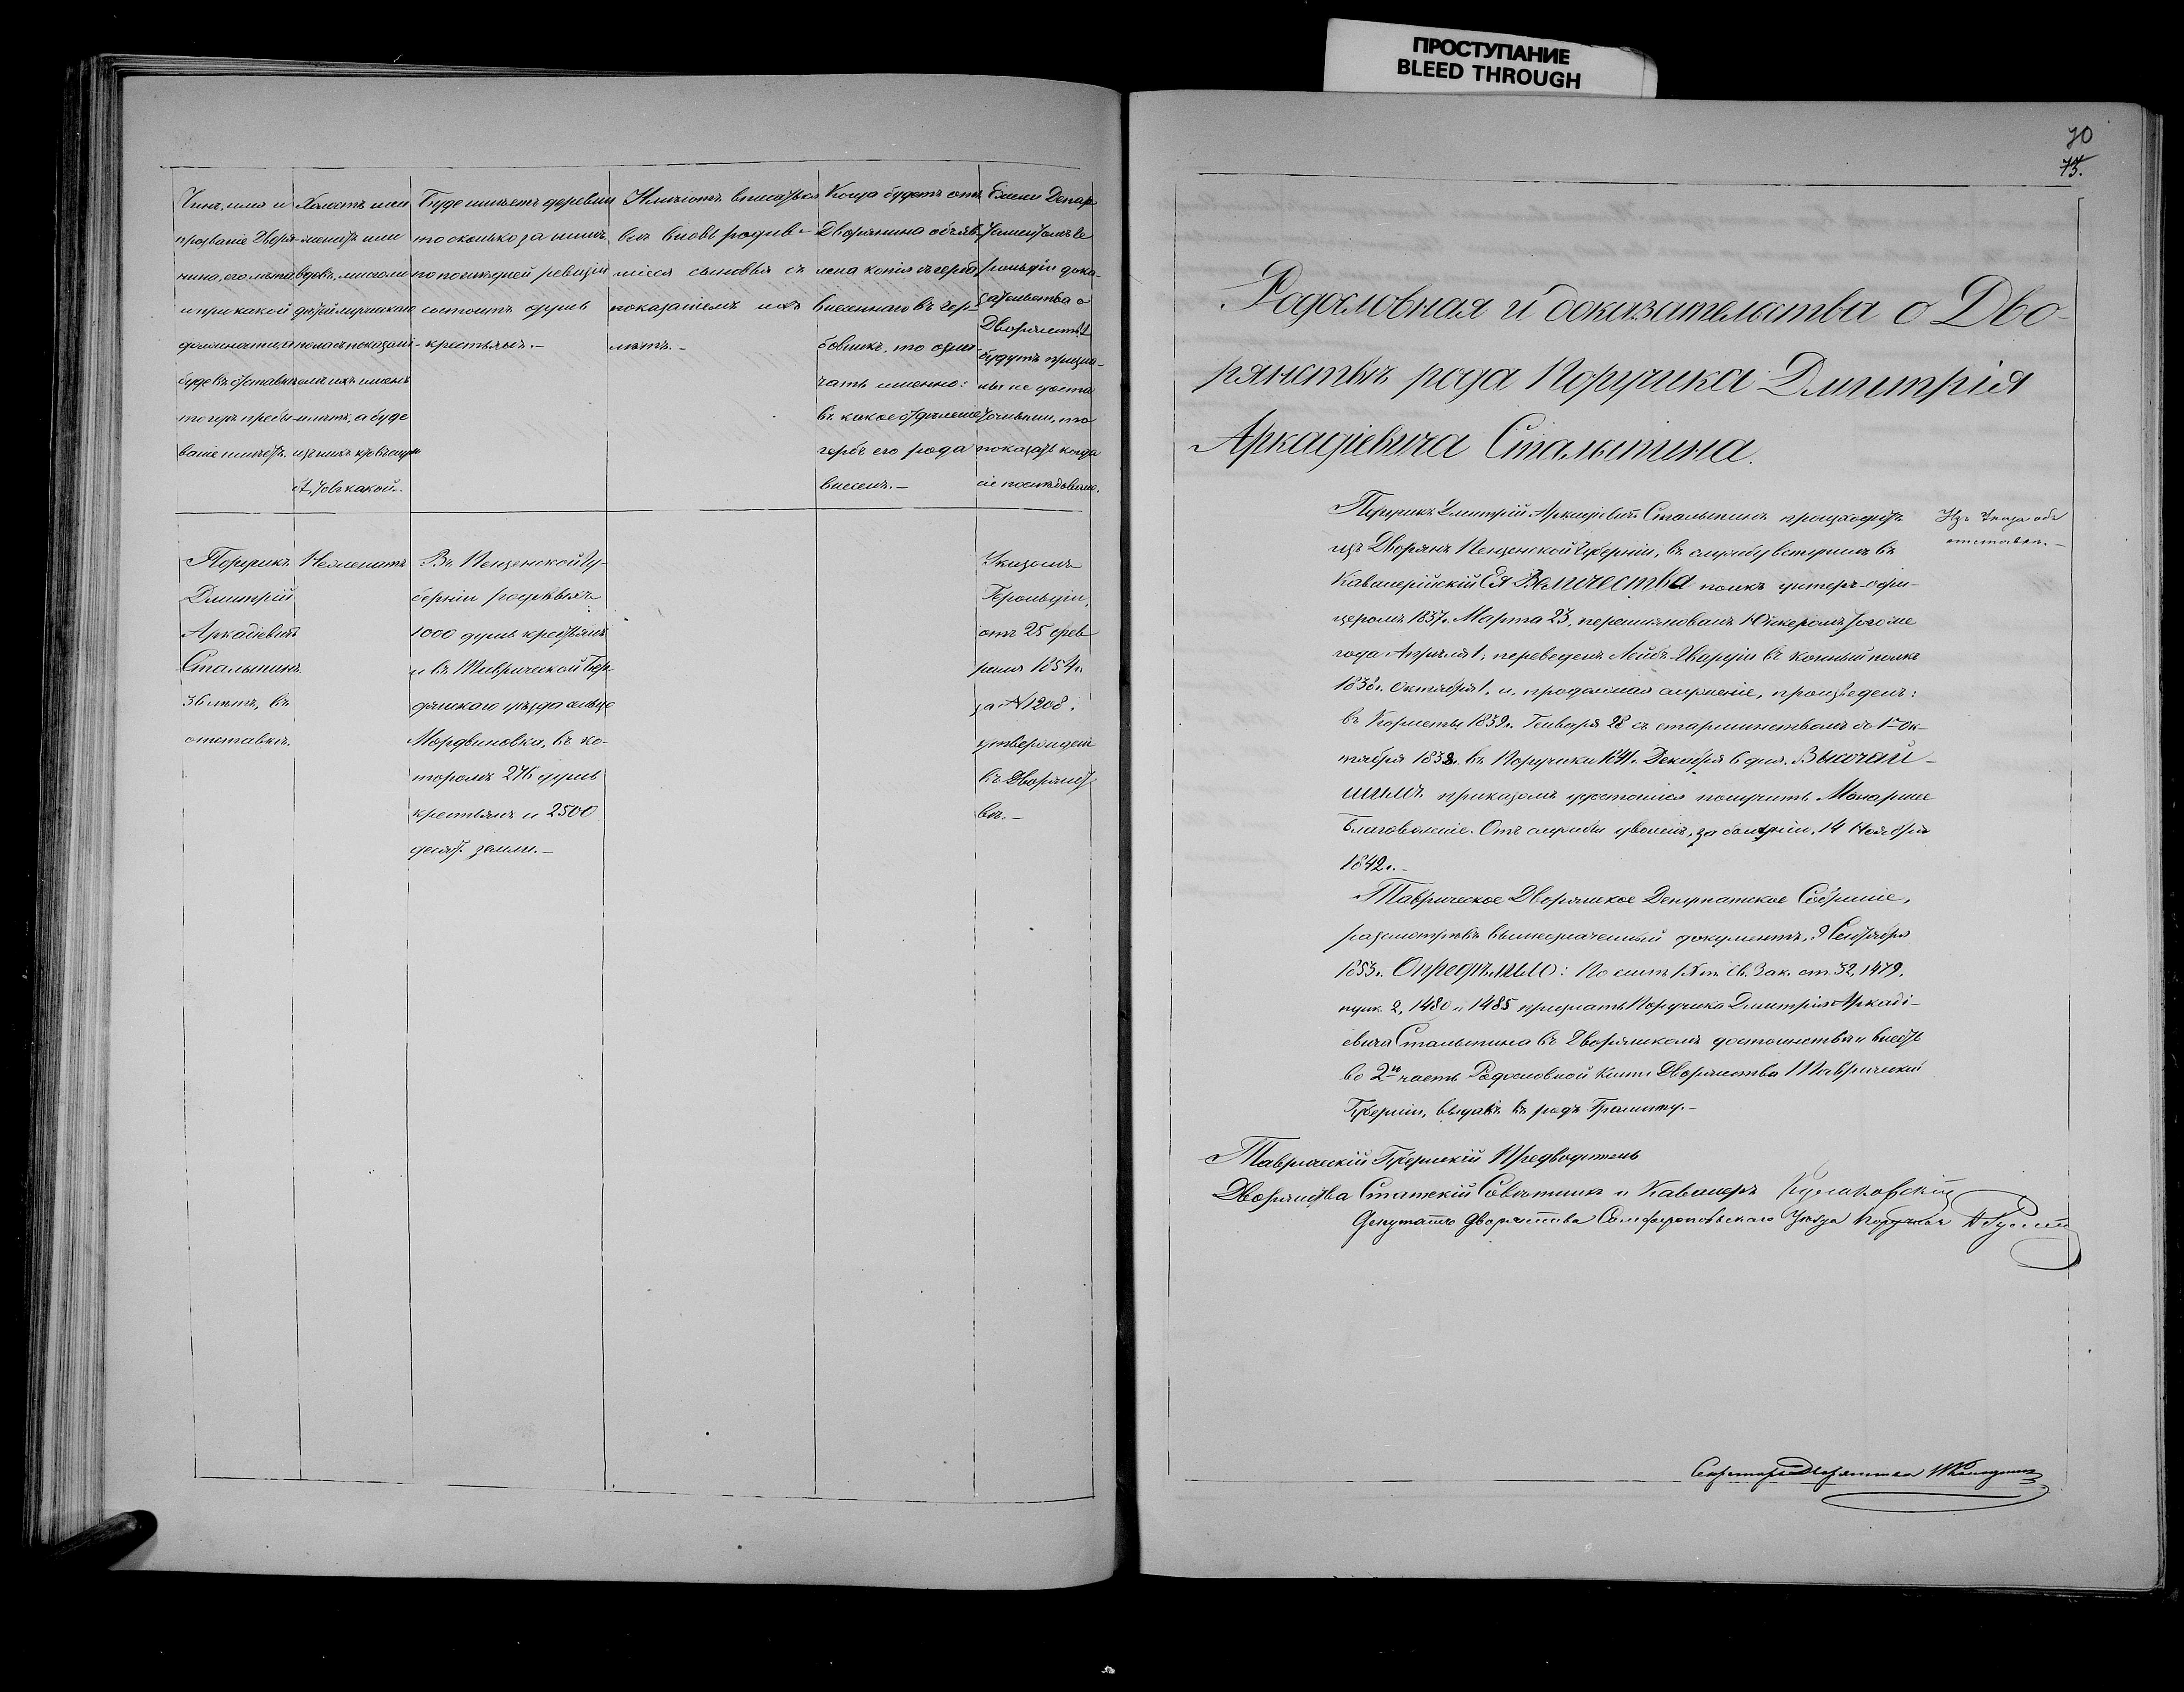 ПРОСТУПАНИЕ
BLEED THROUGH
Чинъ, имя и
прозваніе Дворя-
нина, его лѣта
и при какой
должности, а
буде въ отставкѣ
то гдѣ пребы-
ваніе имѣетъ.
Холостъ или
женатъ или
вдовъ, и
дѣтей мужескаго
пола съ показані-
емъ ихъ именъ
и лѣтъ, а буде
изъ нихъ кто въ служ
то въ какой.
Буде имѣетъ деревни
то сколько за нимъ
по послѣдней ревизіи
состоитъ душъ
крестьянъ.-
Имѣютъ вписаться
вновь родив-
шіеся сыновья съ
показаніемъ ихъ
лѣтъ.-
Когда будетъ отъ
Дворянина объяв-
лена копія съ герба,
внесеннаго въ Гер-
бовникъ, то озна-
чать именно:
въ какое отдѣленіе
гербъ его рода
внесенъ.-
Ежели Депар
таментомъ Ге
рольдіи дока-
зательства о
Дворянствѣ
будутъ призна-
ны
то
показать когда
сіе послѣдовало.
Поручикъ
Дмитрій
Аркадіевичъ
Сталыпинъ
36 лѣтъ, въ
отставкѣ.
Неженатъ
Въ Пензенской Гу-
берніи родовыхъ
1000 душъ крестьянъ
и въ Таврической Бер-
дянскаго уѣзда сельцо
Мордвиновка, въ ко-
торомъ 276 душъ
крестьянъ и 2500
десят. земли.-
Указомъ
Герольдіи,
отъ 25 фев
раля 1854 г.
за № 1208.
утвержденъ
въ Дворянст
вѣ.-
70
75.
Родословная и доказательства о Дво-
рянствѣ рода Поручика Дмитрія
Аркадіевича Сталыпина.
Поручикъ Дмитрій Аркадіевичъ Сталыпинъ происходитъ
изъ Дворянъ Пензенской Губерніи, въ службу вступилъ въ
Кавалерійскій Ея Величества полкъ унтеръ-офи-
церомъ 1837 г. Марта 23, переименованъ Юнкеромъ того же
года Апрѣля 1; переведенъ Лейбъ-Гвардіи въ Конный полкъ
1838 г. Октября 1, и, продолжая служеніе, произведенъ:
въ Корнеты 1839 г. Генваря 28 съ старшинствомъ со 1го Ок-
тября 1838 г. въ Поручики 1841 г. Декабря 6 дня. Высочай-
шимъ приказомъ удостоился получить Монаршее
Благоволеніе. Отъ службы уволенъ, за болѣзнію, 14 Ноября
1842 г.-
Изъ Указа объ
отставкѣ.-
Таврическое Дворянское Депутатское Собраніе,
разсмотрѣвъ вышеозначенный документъ, 9 Сентября
1853 г. Опредѣлило: По силѣ IX т. Св. Зак. ст. 32, 1479,
пунк. 2, 1480 и 1485 признать Поручика Дмитрія Аркаді-
евича Сталыпина въ Дворянскомъ достоинствѣ и внесть
во 2ю часть Родословной Книги Дворянства Таврической
Губерніи, выдавъ въ родъ Грамоту.-
Таврическій Губернскій Предводитель
Дворянства Статскій Совѣтникъ и Кавалеръ
Депутатъ Дворянства Симферопольскаго Уѣзда Поручикъ
Секретарь Дворянства